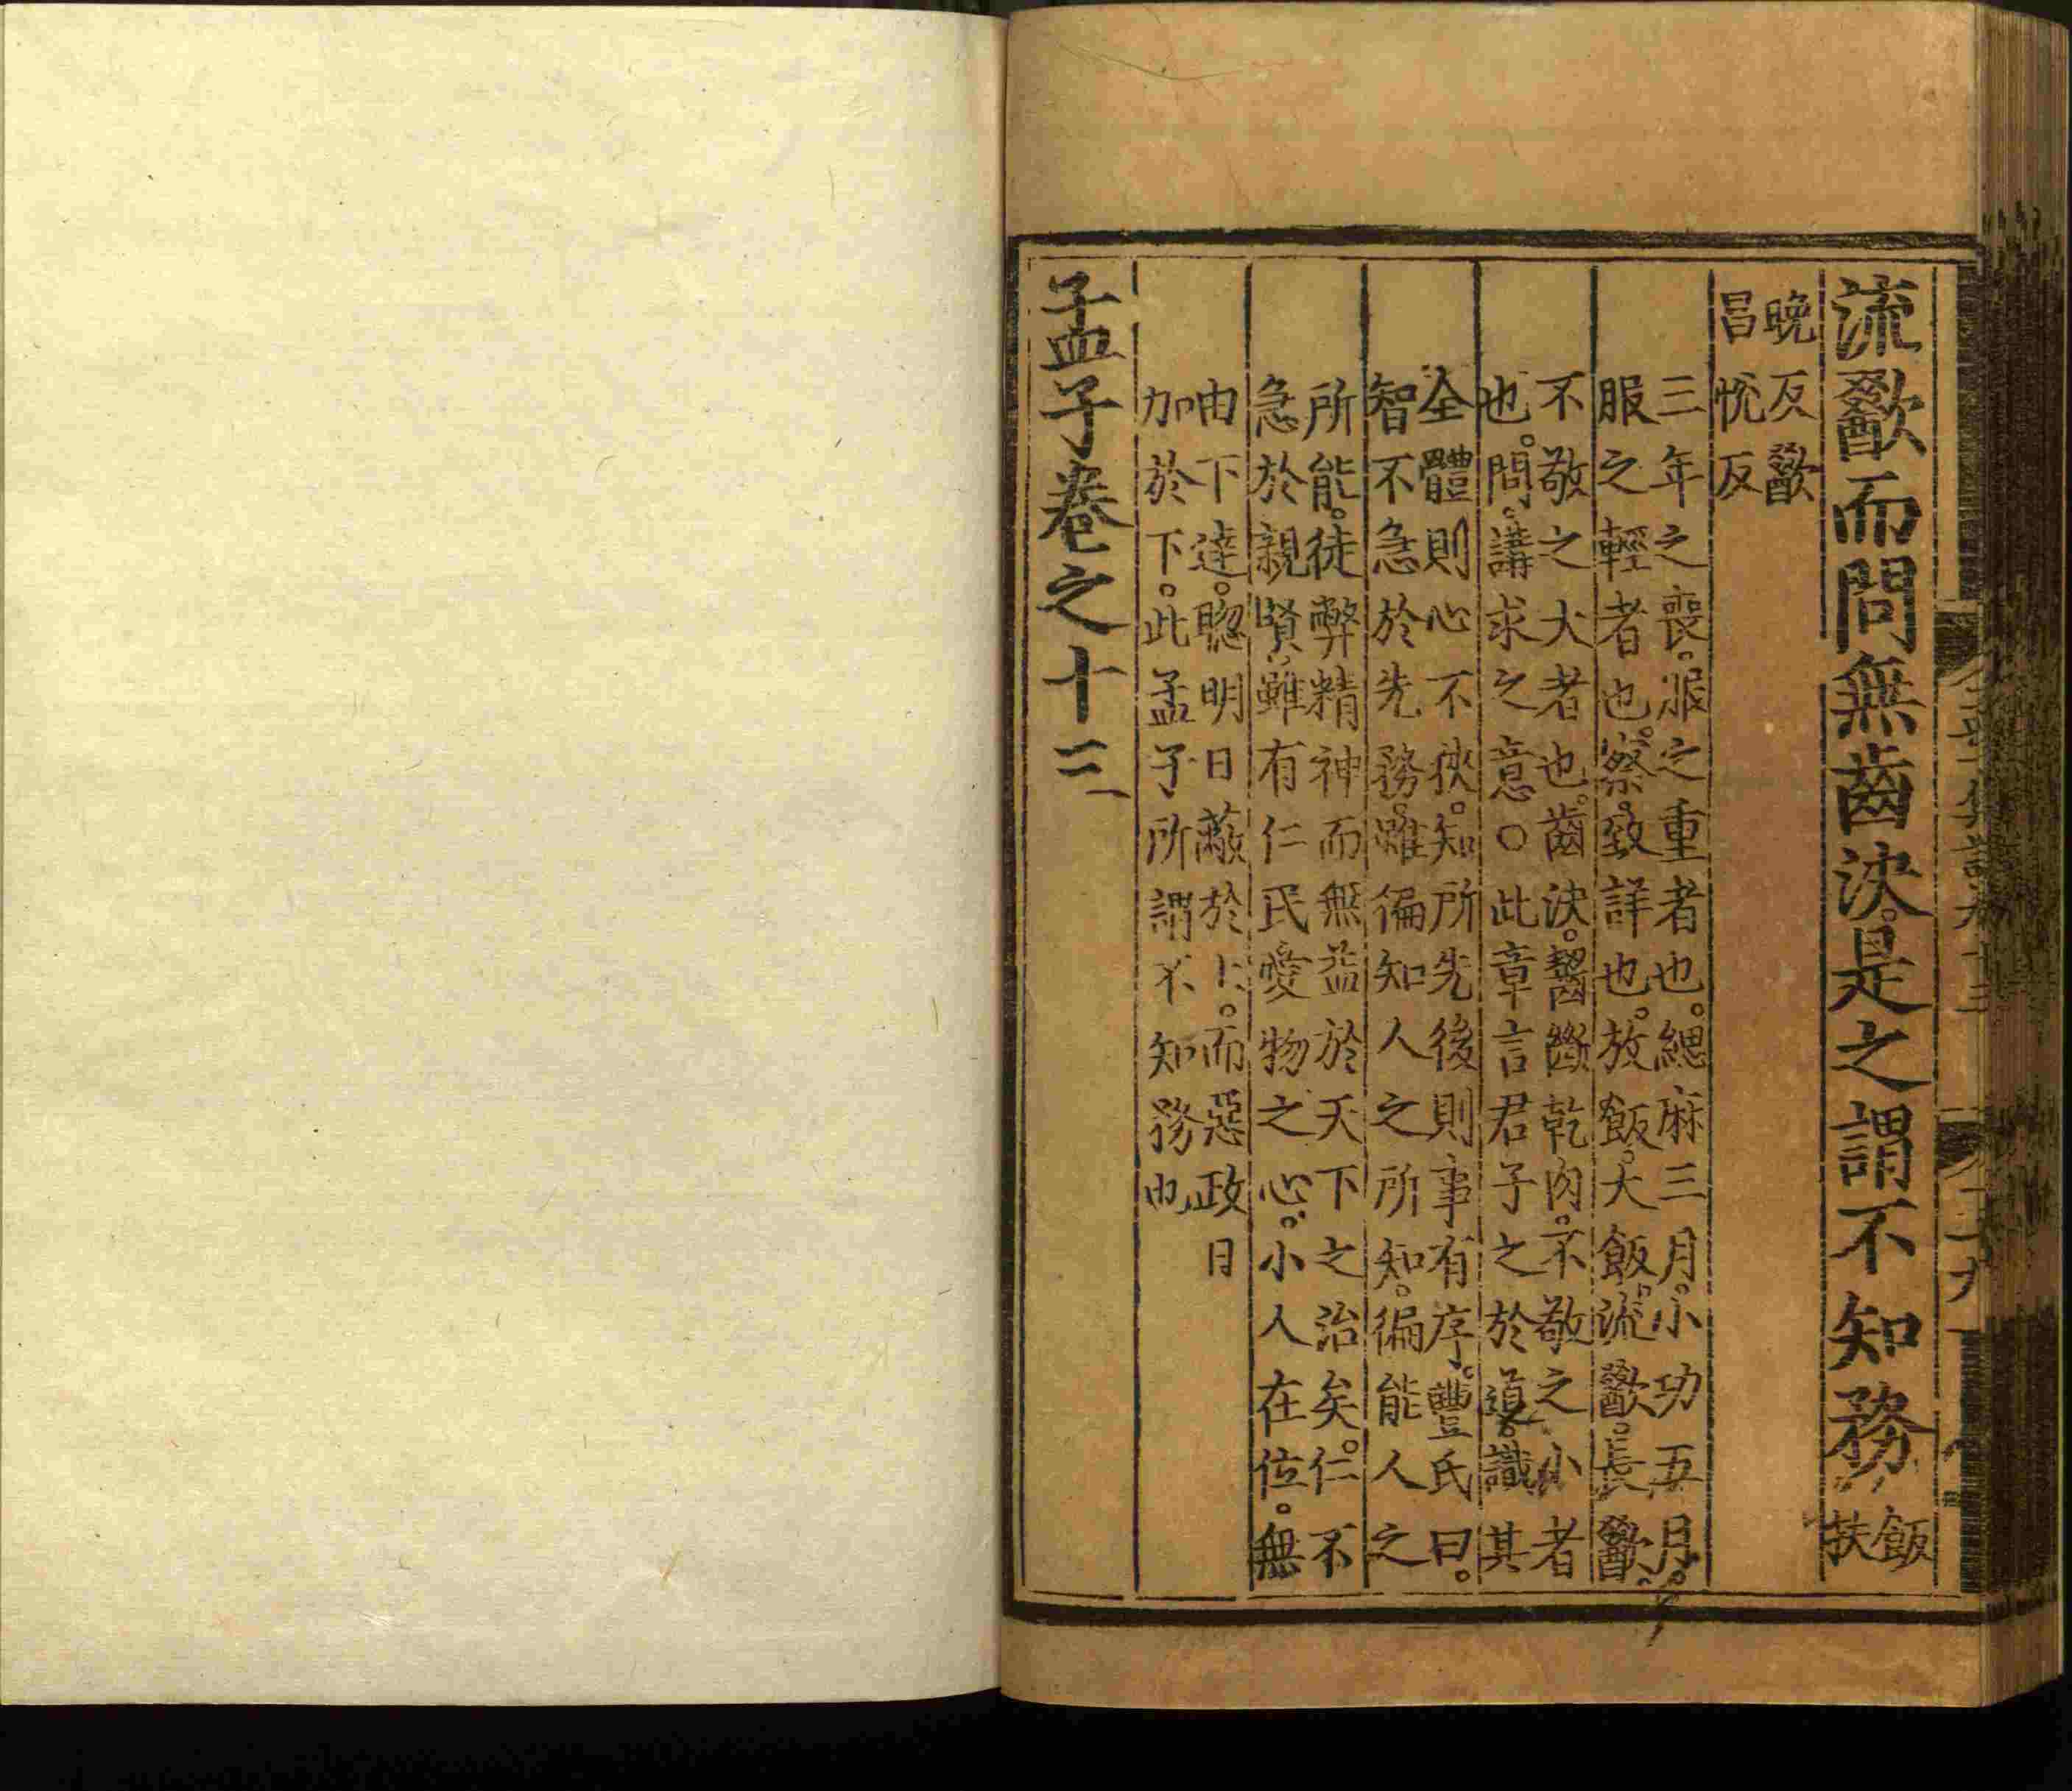 流歠而問無齒決。是之謂不知務飯扶
晚反歠
昌悅反
三年之喪。服之重者也。緦麻三月。小功五月。
服之輕者也。察。致詳也。放飯。大飯。流歠。長歠。
不敬之大者也。齒決。齧斷乾肉。不敬之小者
也。問。講求之意○此章言君子之於道。識其
全體則心不狹。知所先後則事有序。豐氏曰。
智不急於先務。雖徧知人之所知。徧能人之
所能。徒弊精神而無益於天下之治矣。仁不
急於親賢。雖有仁民愛物之心。小人在位。無
由下達。聦明日蔽於上。而惡政日
加於下。此孟子所謂不知務也
孟子卷之十三